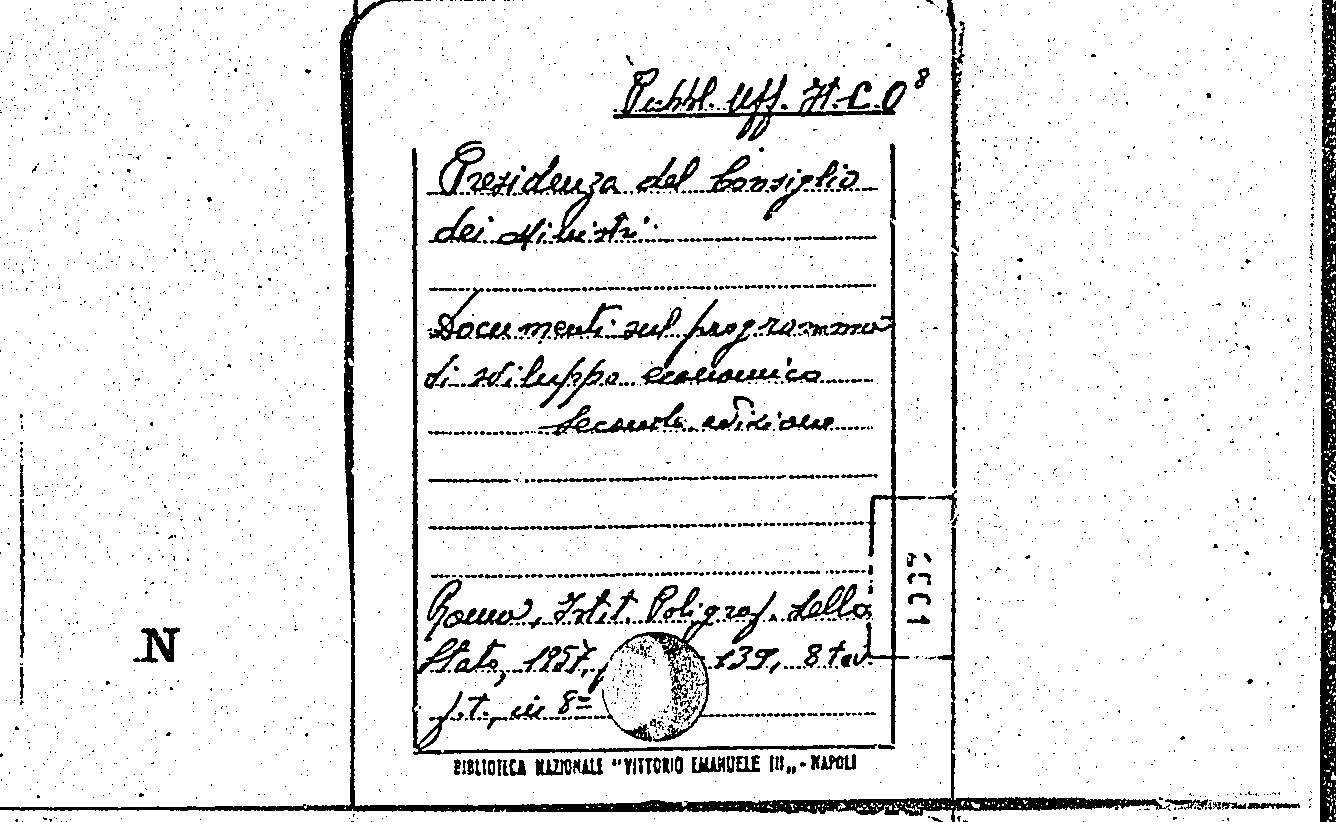 Pubbl. Uff. H.C.O⁸
Presidenza del Consiglio
dei Ministri
Documenti sul programma
di sviluppo economico
Seconda edizione
Roma, Istit. Poligraf. dello
Stato, 1957, 139, 8 tav.
f.t., in 8º
N
BIBLIOTECA NAZIONALE "VITTORIO EMANUELE III„ - NAPOLI